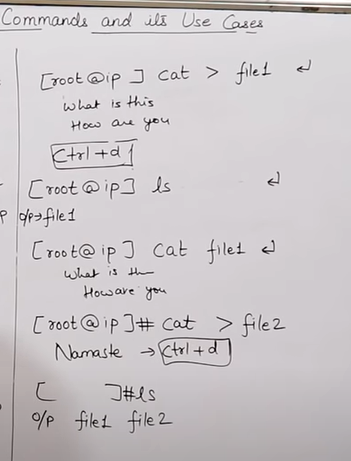 Commands and its Use Cases
[root@ip ] cat > file1 ↵
What is this
How are you
Ctrl+d
[root@ip] ls ↵
o/p→file1
[root@ip ] Cat file1 ↵
What is
How are you
[root@ip]# cat > file2
Namaste → Ctrl+d
[ ]#ls
o/p file1 file2